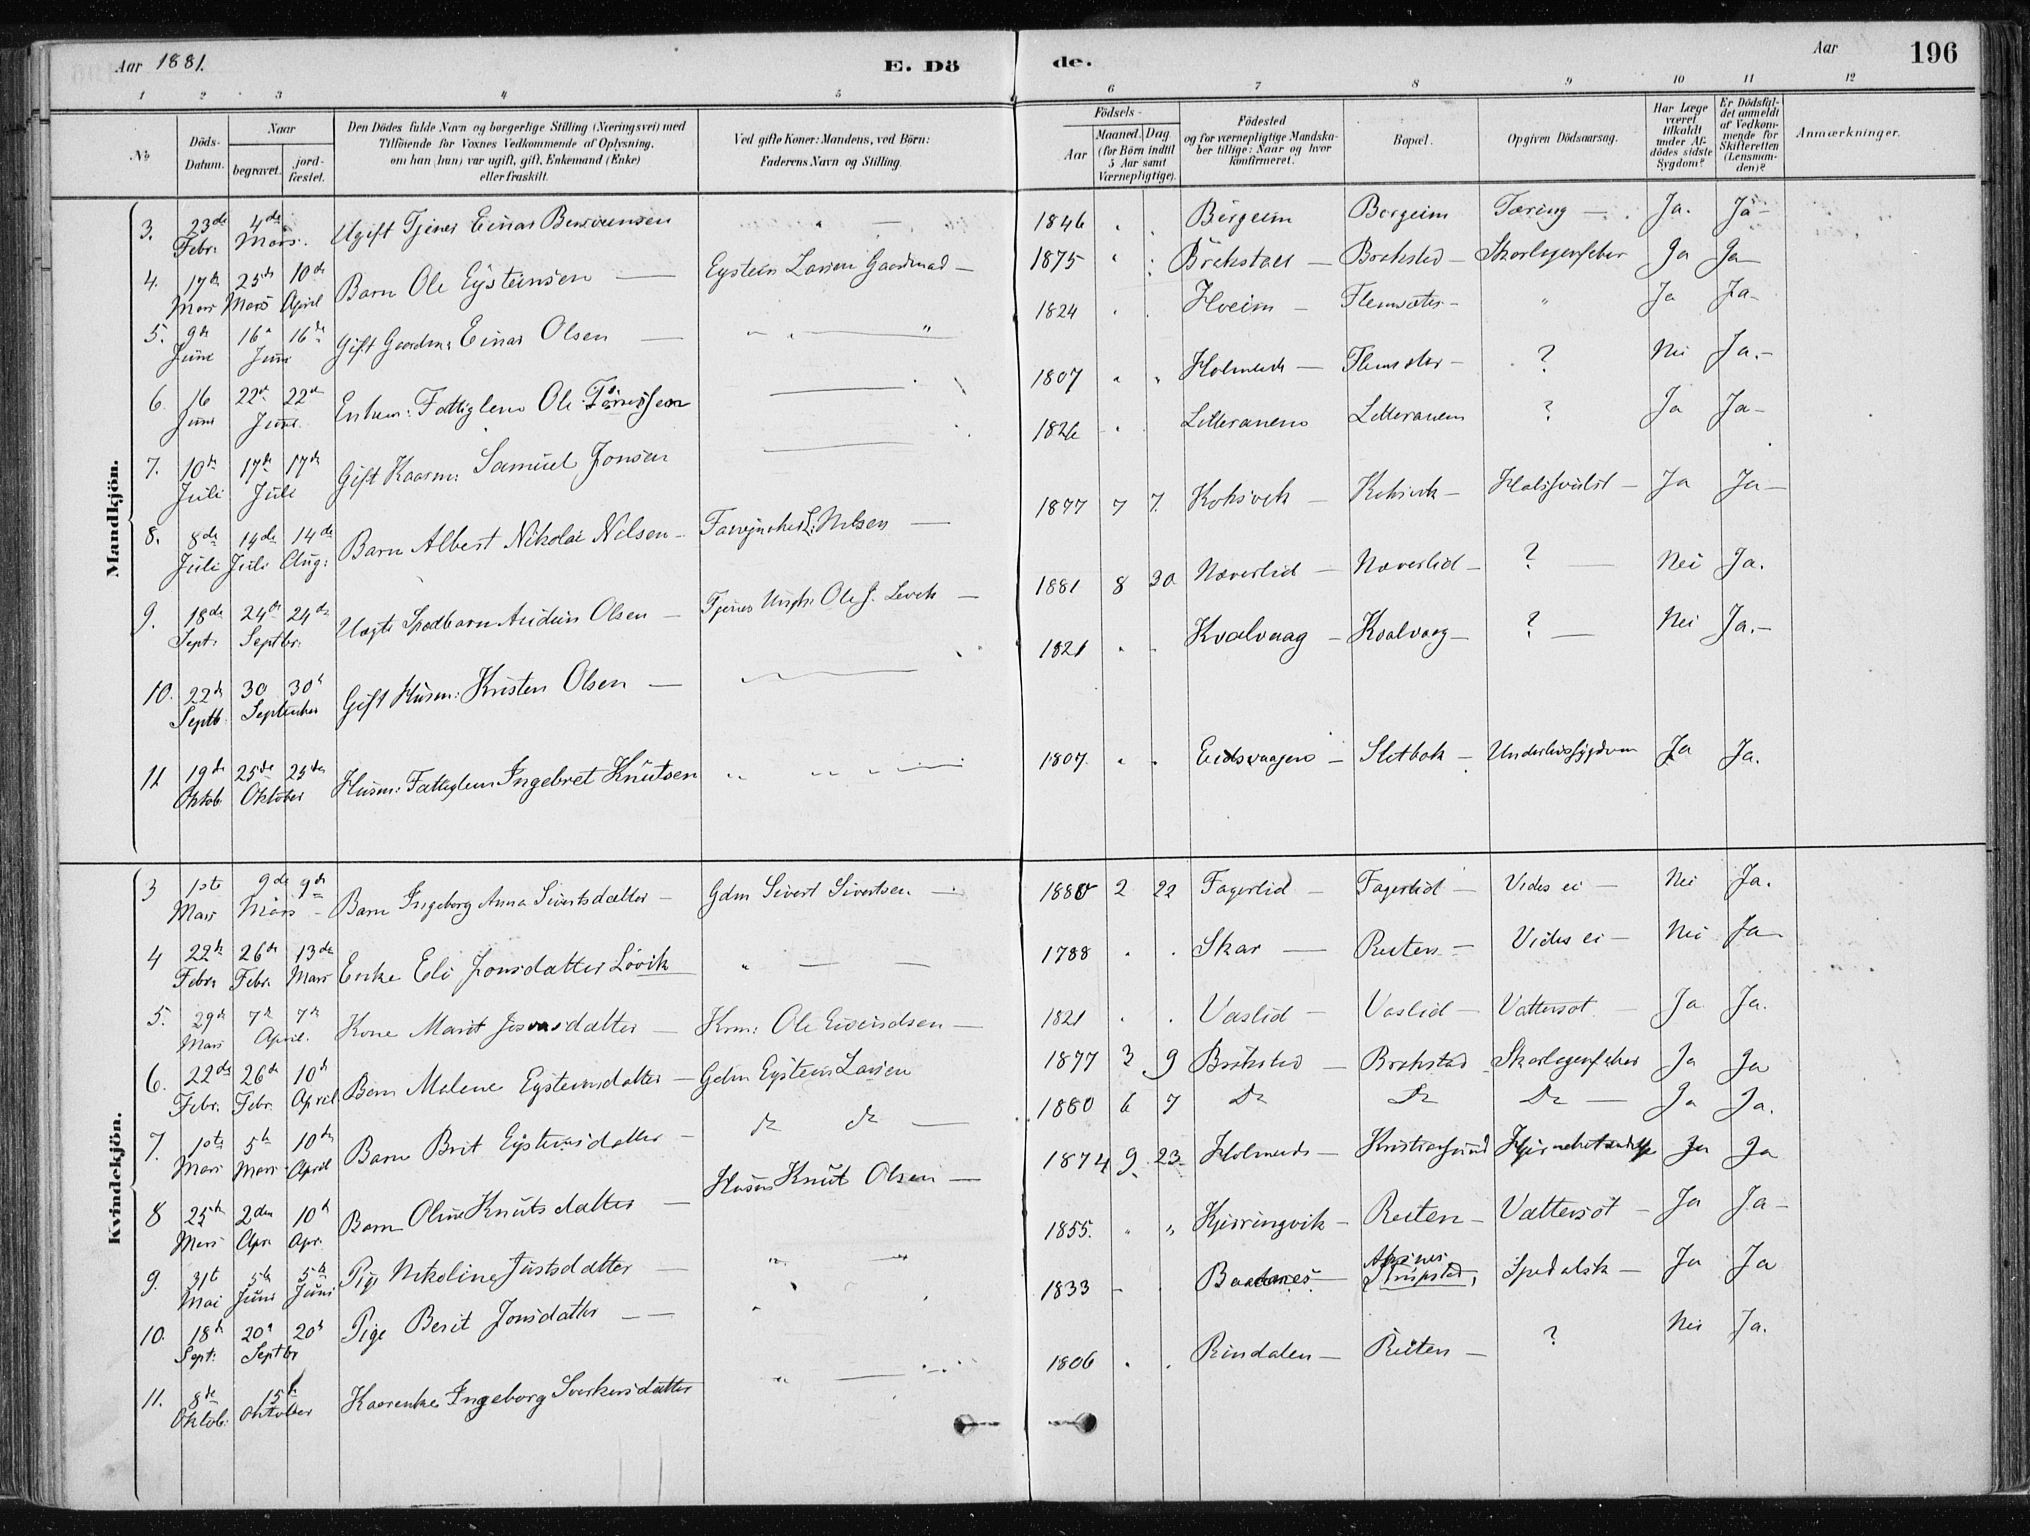 Aar 1881. E. Dö de. Aar 196
1 2 3 4 5 6 7 8 9 10 11 12
No
Döds-Datum.
Naar begravet. jordfæstet.
Den Dödes fulde Navn og borgerlige Stilling (Næringsvei) med Tilföiende for Voxnes Vedkommende af Oplysning, om han (hun) var ugift, gift, Enkemand (Enke) eller fraskilt.
Ved gifte Koner: Mandens, ved Börn: Faderens Navn og Stilling.
Födsels- Aar Maaned. Dag (for Börn indtil 5 Aar samt Værnepligtige).
Födested og for værnepligtige Mandskaber tillige: Naar og hvor konfirmeret.
Bopæl.
Opgiven Dödsaarsag.
Har Læge været tilkaldt under Afdödes sidste Sygdom?
Er Dödsfaldet anmeldt af Vedkommende for Skifteretten (Lensmanden)?
Anmærkninger.
Mandkjön.
3. 23de Febr. 4de Mars. Ugift Tjener Einar 1846 Bergeim Bergeim Tæring Ja. Ja
4. 17de Mars 25de Mars 10de April Barn Ole Eysteinsen Eystein Larsen Gaardmand 1875 Brekstad Brekstad Skarlagensfeber Ja Ja
5. 9de June 16de 16de June Gift Gaardm: Einar Olsen 1824 Hoeim Flemsæter " Ja Ja
6. 16 June 22de 22de June Enkem: Fattiglem Ole 1807 Flemsæter ? Nei Ja.
7. 10de Juli 17de 17de Juli Gift Kaarm: Samuel Jonsen 1826 Litleranem Litleranem ? Ja Ja
8. 8de Juli 14de Juli 14de Aug: Barn Albert Nikolai Nilsen Nilsen 1877 7 7. Koksvik Koksvik Halssvulst Ja Ja
9. 18de Sept: 24de 24de Septbr. Uægte Spædbarn Audun Olsen Tjener Ungk: Ole J. 1881 8 30 Næverlid Næverlid ? Nei Ja.
10. 22de Septb. 30 30te September Gift Husm: Kristen Olsen 1821 Kvalvaag Kvalvaag ? Nei Ja.
11 19de Oktob. 25de 25de Oktober Husm: Fattiglem Ingebret Knutsen 1807 Eidsvaagen Sletbak Underlivssygdom Ja Ja.
Kvindekjön.
3 1ste Mars 9de 9de Mars Barn Ingeborg Anna Sivertsdatter Gdm Sivert Sivertsen 1880 2 22 Fagerlid Fagerlid Vides ei Nei Ja.
4 22de Febr. 26de Febr. 13de Mars Enke Eli Jonsdatter Lövik 1788 Skar Reiten Vides ei Nei Ja
5. 29de Mars 7de 7de April. Kone Marit datter Krm: Ole Eivindsen 1821 Vaslid Vaslid Vattersot Ja Ja.
6. 22de Febr. 26de Febr. 10de April Barn Malene Eysteinsdatter Gdm Eystein Larsen 1877 3 9 Brekstad Brekstad Skarlagensfeber Ja Ja
7. 1ste Mars 5te Mars 10de April Barn Brit Eysteinsdatter do do 1880 6 7 Do Do Do Ja Ja.
8 25de Mars 2den Apr. 10de Apr. Barn Oline Knutsdatter Husm Knut Olsen 1874 9. 23 Kristiansund Ja Ja
9. 31te Mai 5te Juni 5te Juni Pige Nikoline Justsdatter 1855. Kjerringvik Reiten Vattersot Ja Ja
10. 18de Sept: 20de 20de Septbr Pige Berit Jonsdatter 1833 Spedalsk Ja Ja
11. 8de Oktob: 15de Oktober Kaarenke Ingeborg Sverkersdatter 1806 Rindalen Reiten ? Nei Ja.